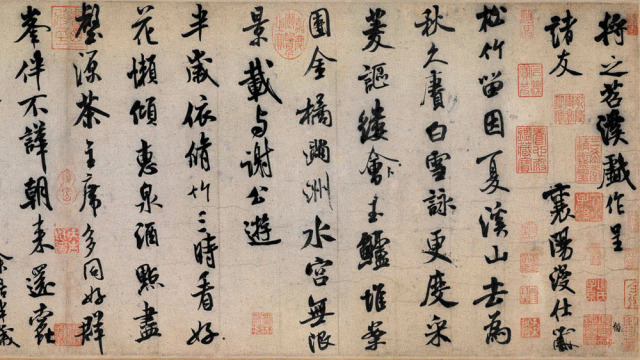 將之苕溪戲作呈
諸友
襄陽漫仕黻
松竹留因夏溪山去為
秋久賡白雪詠更度采
菱謳縷會玉鱸堆案
團金橘滿洲水宮無限
景載与謝公遊
半歲依修竹三時看好
花懶傾惠泉酒點盡
壑源茶主席多同好群
峯伴不譁朝來還蠹
余居半歲